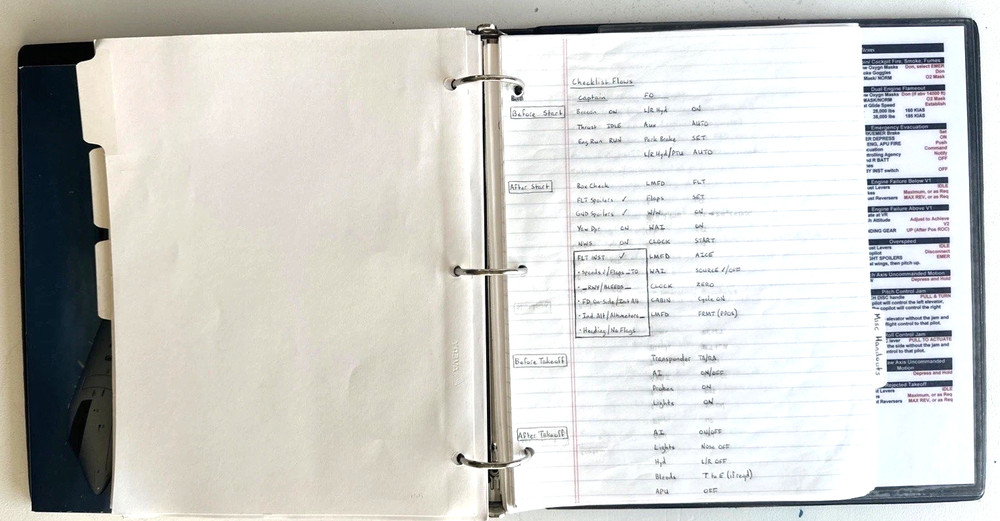 Checklist Flows
Captain FO
Before Start Beacon ON L/R Hyd ON
Thrust IDLE Aux AUTO
Eng Run. RUN Park Brake SET
L/R Hyd/PTU AUTO
After Start Box Check LMFD FLT
FLT Spoilers ✓ Flaps SET
GND Spoilers ✓ W/W ON
Yaw Dpr ON WAI ON
NWS ON CLOCK START
FLT INST ✓ LMFD AICE
WAI SOURCE
RWY/ CLOCK ZERO
• FD, On-Side/ CABIN Cycle ON
• Ind. Alt/Altimeters LMFD FRMT
• Heading/No Flags
Before Takeoff Transponder TA/RA
AI ON/OFF
Probes ON
Lights ON
After Takeoff AI ON/OFF
Lights Nose OFF
Hyd L/R OFF
Bleeds T to E (if reqd)
APU OFF
Misc Handouts
Cockpit Fire, Smoke, Fumes
Oxygn Masks Don, select EMER
Goggles Don
Mask/ NORM O2 Mask
Dual Engine Flameout
Oxygn Masks Don (if abv 14000 ft)
MASK/NORM O2 Mask
Glide Speed Establish
28,000 lbs 165 KIAS
36,000 lbs 185 KIAS
Emergency Evacuation
Brake Set
DEPRESS ON
ENG, APU FIRE Push
Command
Agency Notify
R BATT OFF
INST switch OFF
Engine Failure Below V1
Levers IDLE
Maximum, or as Req
Reversers MAX REV, or as Req
Engine Failure Above V1
at VR
Attitude Adjust to Achieve
V2
GEAR UP (After Pos ROC)
Overspeed
Levers IDLE
Disconnect
SPOILERS EMER
wings, then pitch up.
Axis Uncommanded Motion
Depress and Hold
Pitch Control Jam
DISC handle PULL & TURN
pilot will control the left elevator,
copilot will control the right
elevator without the jam and
flight control to that pilot.
Control Jam
lever PULL TO ACTUATE
the side without the jam and
control to that pilot.
Axis Uncommanded
Motion
Depress and Hold
Rejected Takeoff
Levers IDLE
Maximum, or as Req
Reversers MAX REV, or as Req